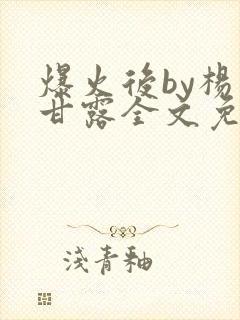 爆火後by楊
甘露全文免
淺青釉